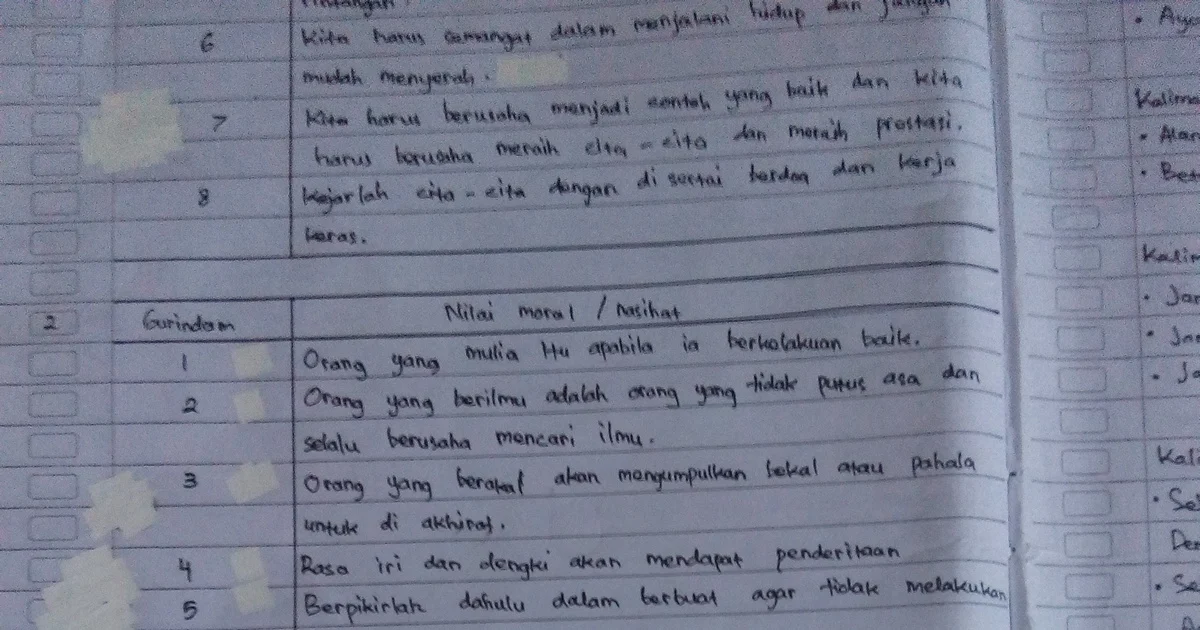 rintangan.
6 Kita harus semangat dalam menjalani hidup dan jangan
mudah menyerah.
7 Kita harus berusaha menjadi contoh yang baik dan kita
harus berusaha meraih cita-cita dan meraih prestasi.
8 Kejarlah cita-cita dengan di sertai berdoa dan kerja
keras.
2 Gurindam Nilai moral / nasihat
1 Orang yang mulia itu apabila ia berkelakuan baik.
2 Orang yang berilmu adalah orang yang tidak putus asa dan
selalu berusaha mencari ilmu.
3 Orang yang berakal akan mengumpulkan bekal atau pahala
untuk di akhirat.
4 Rasa iri dan dengki akan mendapat penderitaan
5 Berpikirlah dahulu dalam berbuat agar tidak melakukan
Kalima
Kalim
Kali